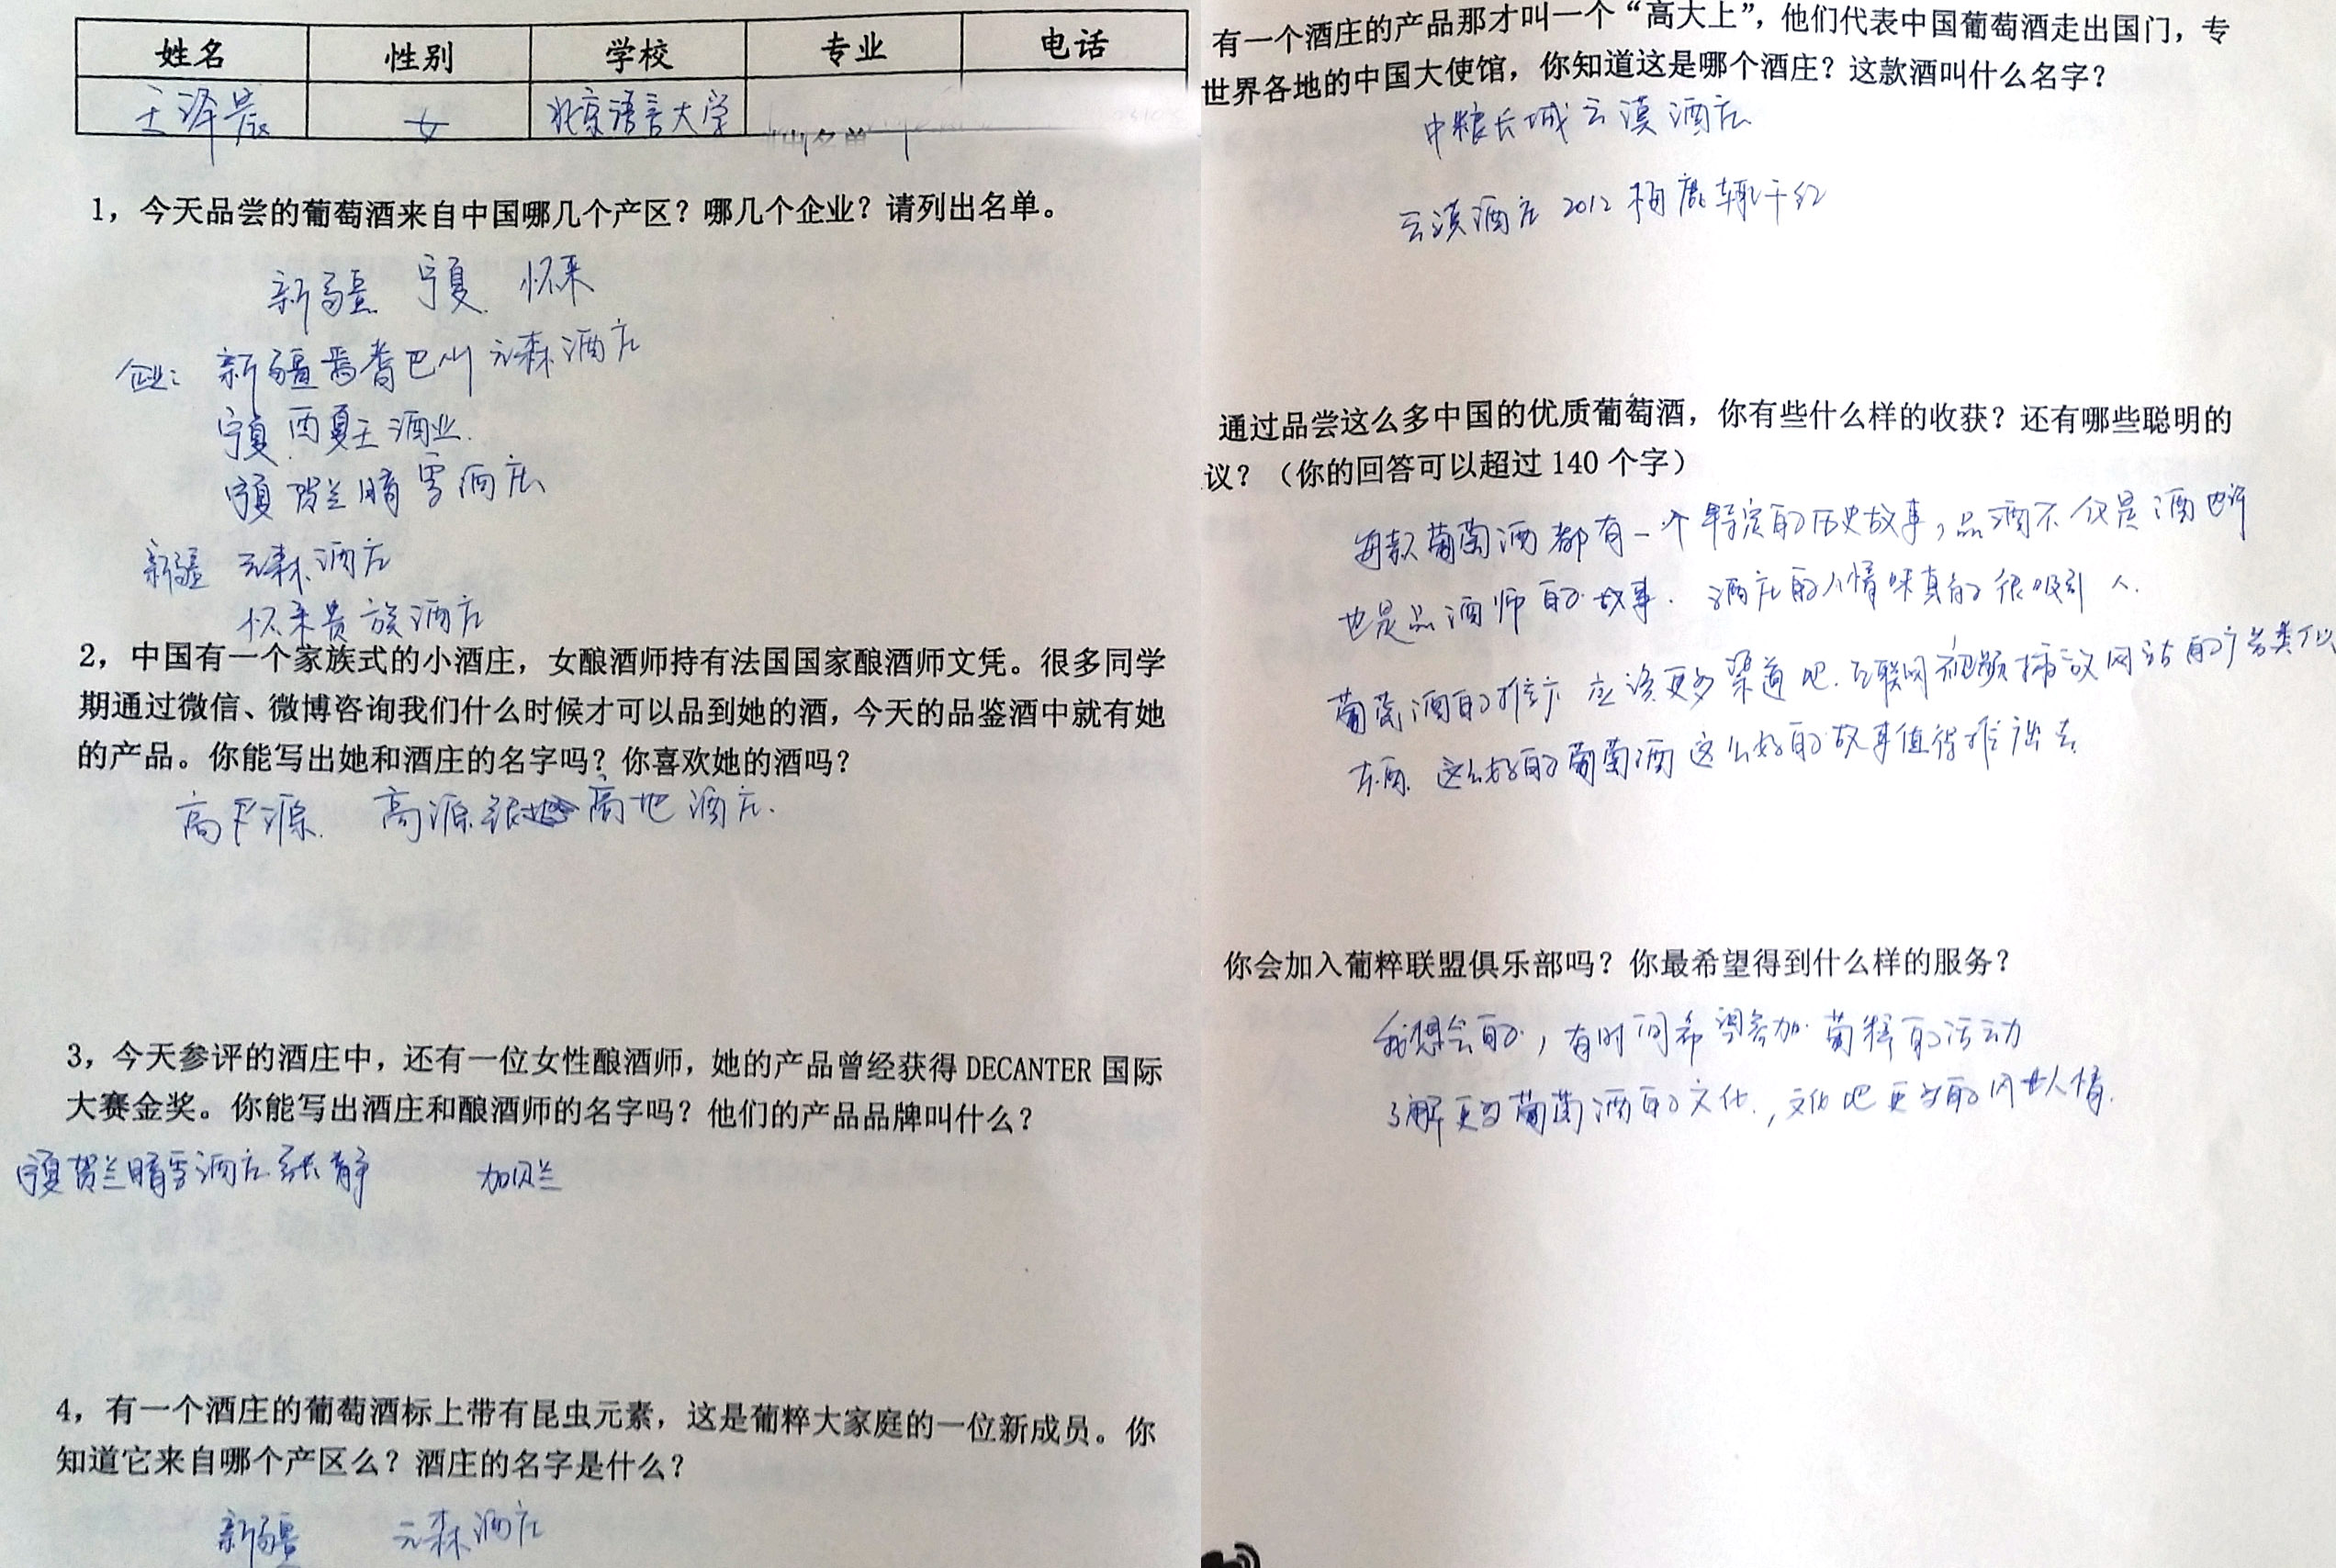 姓名 性别 学校 专业 电话
王泽 女 北京语言大学
1，今天品尝的葡萄酒来自中国哪几个产区？哪几个企业？请列出名单。
新疆 宁夏 怀来
企业：新疆焉耆巴州元森酒庄
宁夏 西夏王酒业
宁夏 贺兰晴雪酒庄
新疆 元森酒庄
怀来贵族酒庄
2，中国有一个家族式的小酒庄，女酿酒师持有法国国家酿酒师文凭。很多同学
期通过微信、微博咨询我们什么时候才可以品到她的酒，今天的品鉴酒中就有她
的产品。你能写出她和酒庄的名字吗？你喜欢她的酒吗？
高源 高源银 高地酒庄.
3，今天参评的酒庄中，还有一位女性酿酒师，她的产品曾经获得 DECANTER 国际
大赛金奖。你能写出酒庄和酿酒师的名字吗？他们的产品品牌叫什么？
宁夏贺兰晴雪酒庄 张静 加贝兰
4，有一个酒庄的葡萄酒标上带有昆虫元素，这是葡粹大家庭的一位新成员。你
知道它来自哪个产区么？酒庄的名字是什么？
新疆 元森酒庄
有一个酒庄的产品那才叫一个“高大上”，他们代表中国葡萄酒走出国门，专
世界各地的中国大使馆，你知道这是哪个酒庄？这款酒叫什么名字？
中粮长城云漠酒庄
云漠酒庄 2012 梅鹿辄干红
通过品尝这么多中国的优质葡萄酒，你有些什么样的收获？还有哪些聪明的
议？（你的回答可以超过 140 个字）
每款葡萄酒都有一个特定的历史故事，品酒不仅是酒也许
也是品酒师的故事. 酒庄的人情味真的很吸引人.
葡萄酒的推广应该更多渠道吧. 互联网视频播放网站的广告类似
东西. 这么好的葡萄酒这么好的故事值得推出去
你会加入葡粹联盟俱乐部吗？你最希望得到什么样的服务？
我想会的，有时间希望参加葡粹的活动
了解更多葡萄酒的文化.，文化吧更多的 人情.